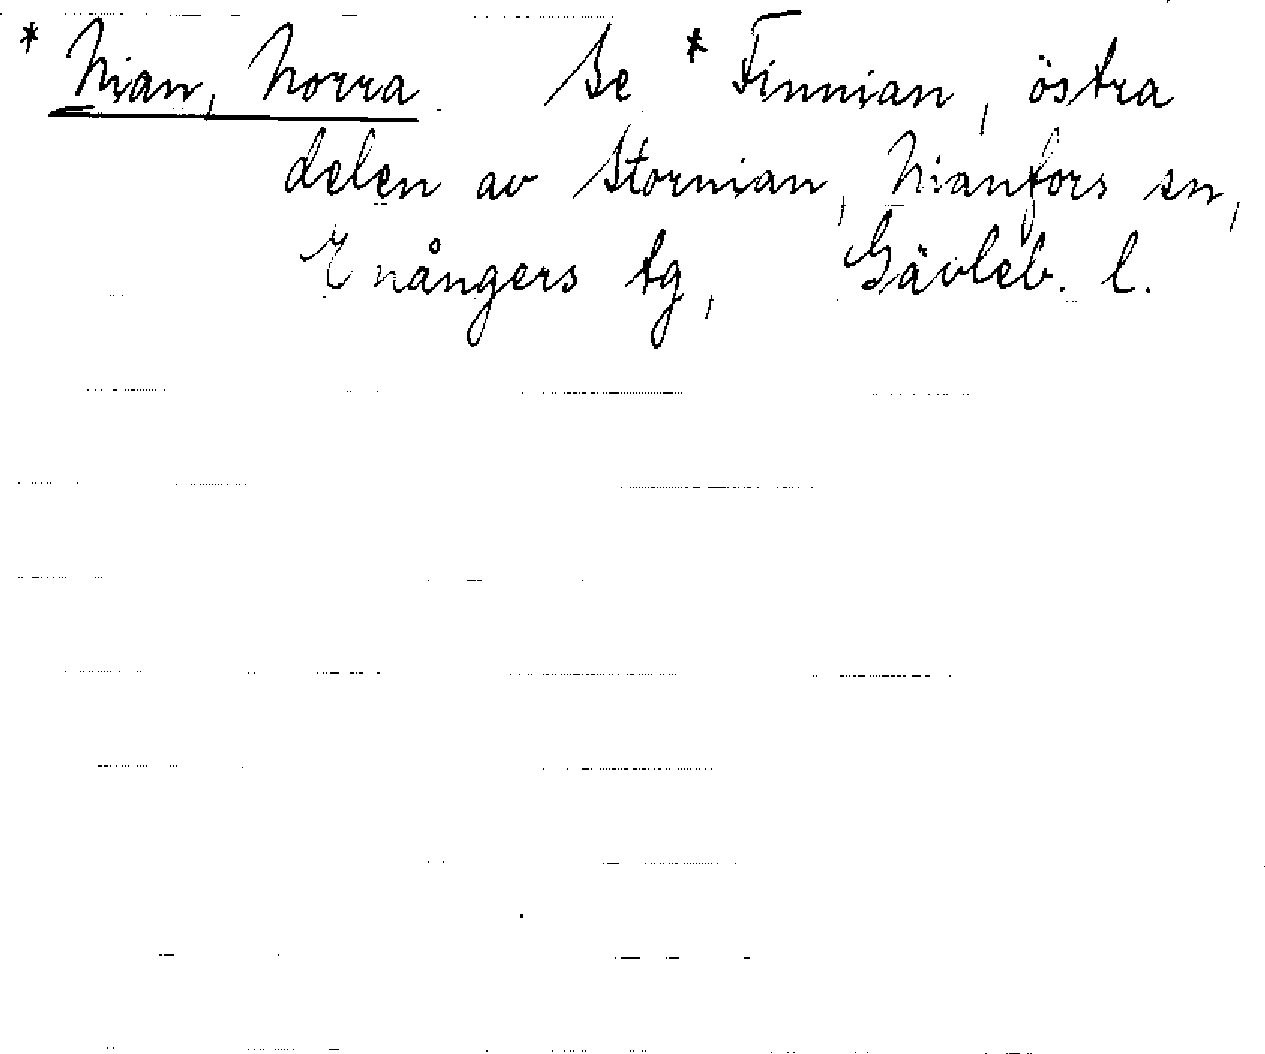 * Nian, Norra. Se * Finnian, östra
delen av Stornian, Nianfors sn,
Enångers tg, Gävleb. l.